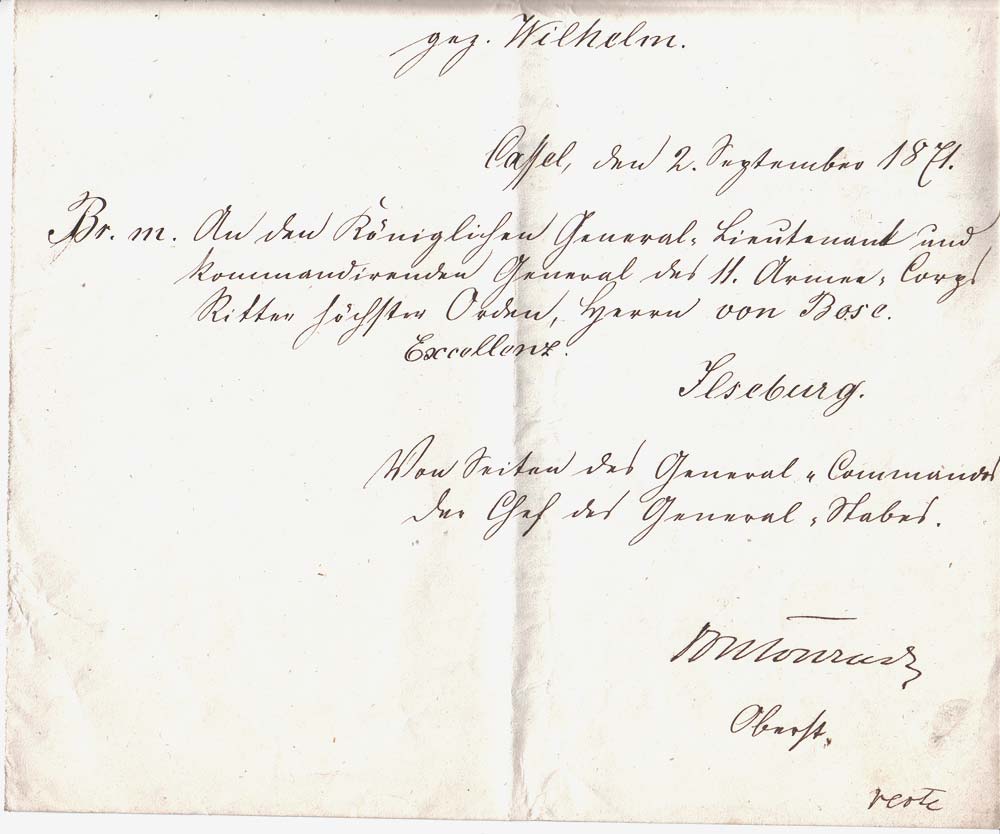 gez. Wilhelm.
Cassel, den 2. September 1871.
Br. m. An den Königlichen General-Lieutenant und
kommandirenden General des 11. Armee-Corps
Ritter höchster Orden, Herrn von Bose.
Excellenz.
Ilseburg.
Von Seiten des General-Commandos
der Chef des General-Stabes.
Oberst.